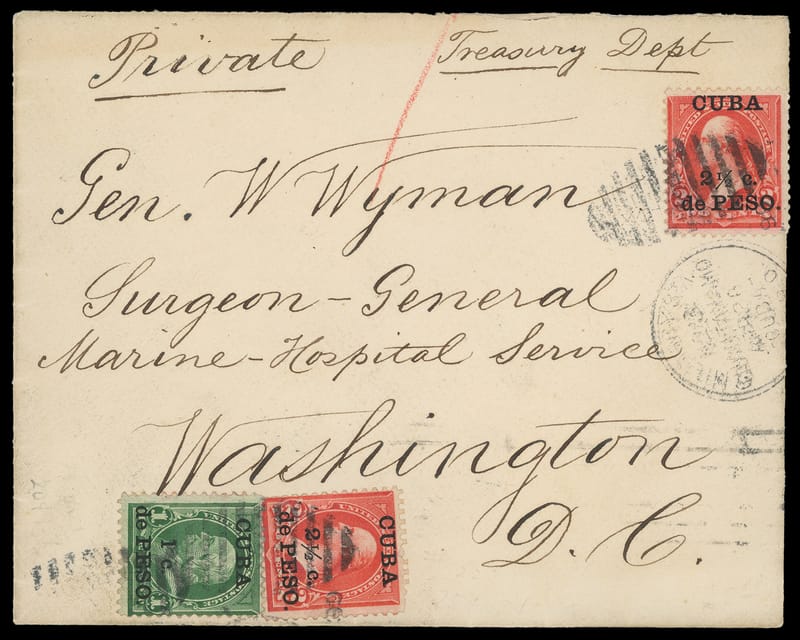 Private
Treasury Dept
CUBA
2½ c.
de PESO.
Gen. W Wyman
Surgeon-General
Marine-Hospital Service
Washington
D. C.
CUBA
1 c.
de PESO
1
1
CUBA
2½ c.
de PESO.